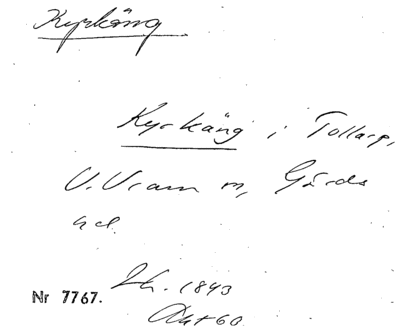 Kyrkäng
Kyrkäng i Tollarp,
V. Vram m, Gärds
hd.
Lh. 1843
Nr 7767.
Akt 60